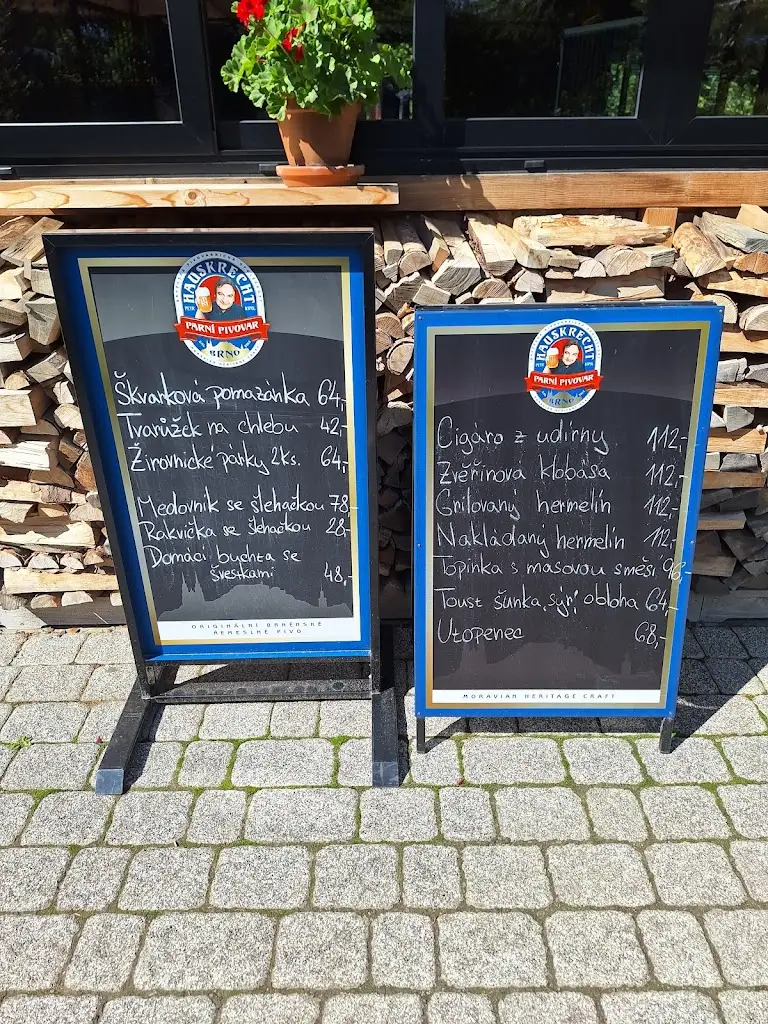 HAUSKRECHT
PETR KRYL
PARNÍ PIVOVAR
BRNO
Škvarková pomazánka 64,-
Tvarůžek na chlebu 42,-
Žirovnické párky 2ks. 64,-
Medovník se šlehačkou 78,-
Rakvička se šlehačkou 28,-
Domácí buchta se
švestkami 48,-
ORIGINÁLNÍ BRNĚNSKÉ
ŘEMESLNÉ PIVO
HAUSKRECHT
PETR KRYL
PARNÍ PIVOVAR
BRNO
Cigáro z udírny 112,-
Zvěřinová klobása 112,-
Grilovaný hermelín 112,-
Nakládaný hermelín 112,-
Topinka s masovou směsí 96,-
Toust šunka, sýr, obloha 64,-
Utopenec 68,-
MORAVIAN HERITAGE CRAFT